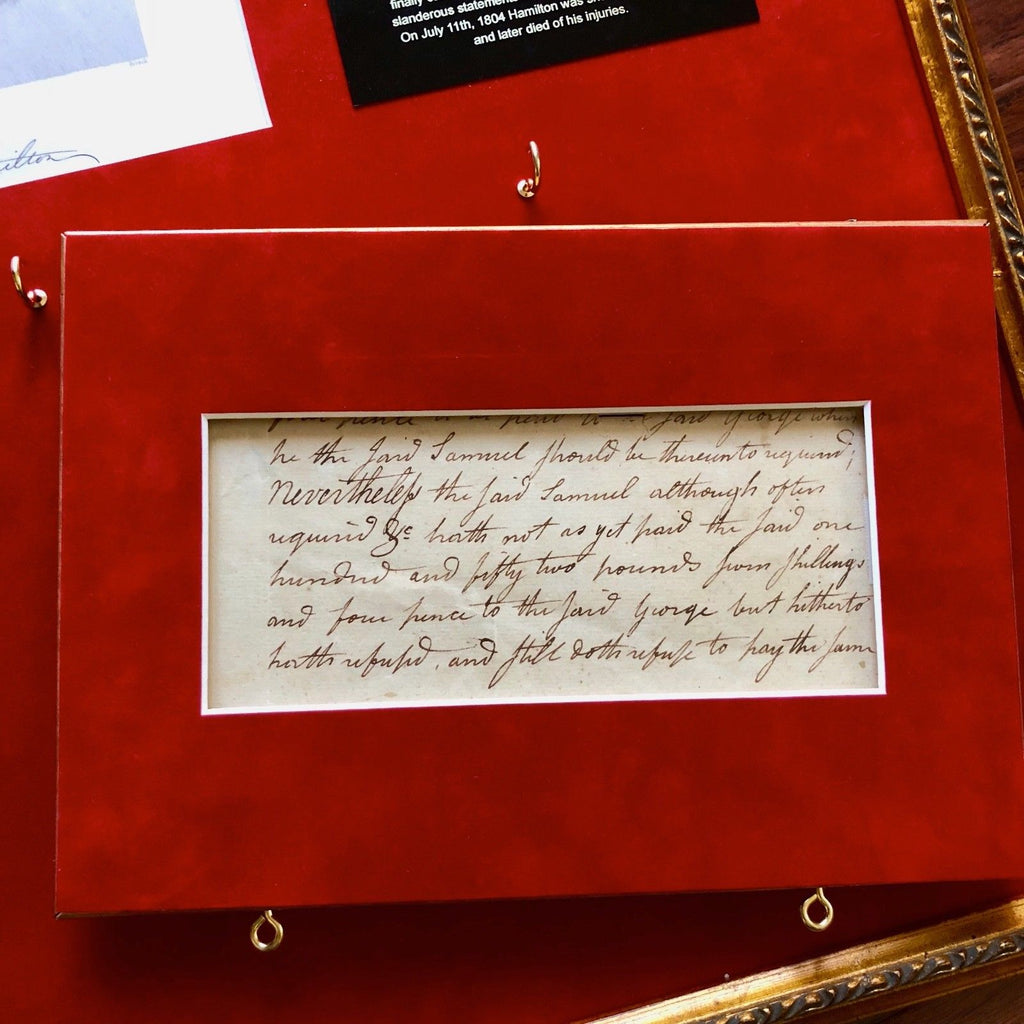 finally
slanderous statements
On July 11th, 1804 Hamilton was
and later died of his injuries.
ilton
pence to be paid to said George when
he the said Samuel should be thereunto required;
Nevertheless the said Samuel although often
required &c hath not as yet paid the said one
hundred and fifty two pounds seven shillings
and four pence to the said George but hitherto
hath refused, and still doth refuse to pay the same